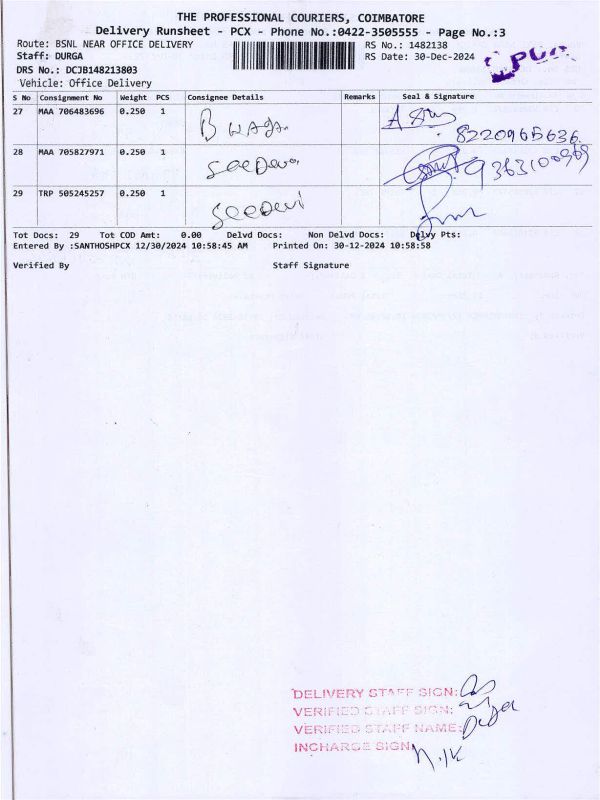 THE PROFESSIONAL COURIERS, COIMBATORE
Delivery Runsheet - PCX - Phone No.:0422-3505555 - Page No.:3
Route: BSNL NEAR OFFICE DELIVERY RS No.: 1482138
Staff: DURGA RS Date: 30-Dec-2024
PCX
DRS No.: DCJB148213803
Vehicle: Office Delivery
S No Consignment No Weight PCS Consignee Details Remarks Seal & Signature
27 MAA 706483696 0.250 1
8220965636
28 MAA 705827971 0.250 1
9363100969
29 TRP 505245257 0.250 1
Tot Docs: 29 Tot COD Amt: 0.00 Delvd Docs: Non Delvd Docs: Delvy Pts:
Entered By :SANTHOSHPCX 12/30/2024 10:58:45 AM Printed On: 30-12-2024 10:58:58
Verified By Staff Signature
DELIVERY STAFF SIGN:
VERIFIED STAFF SIGN:
VERIFIED STAFF NAME:
INCHARGE SIGN